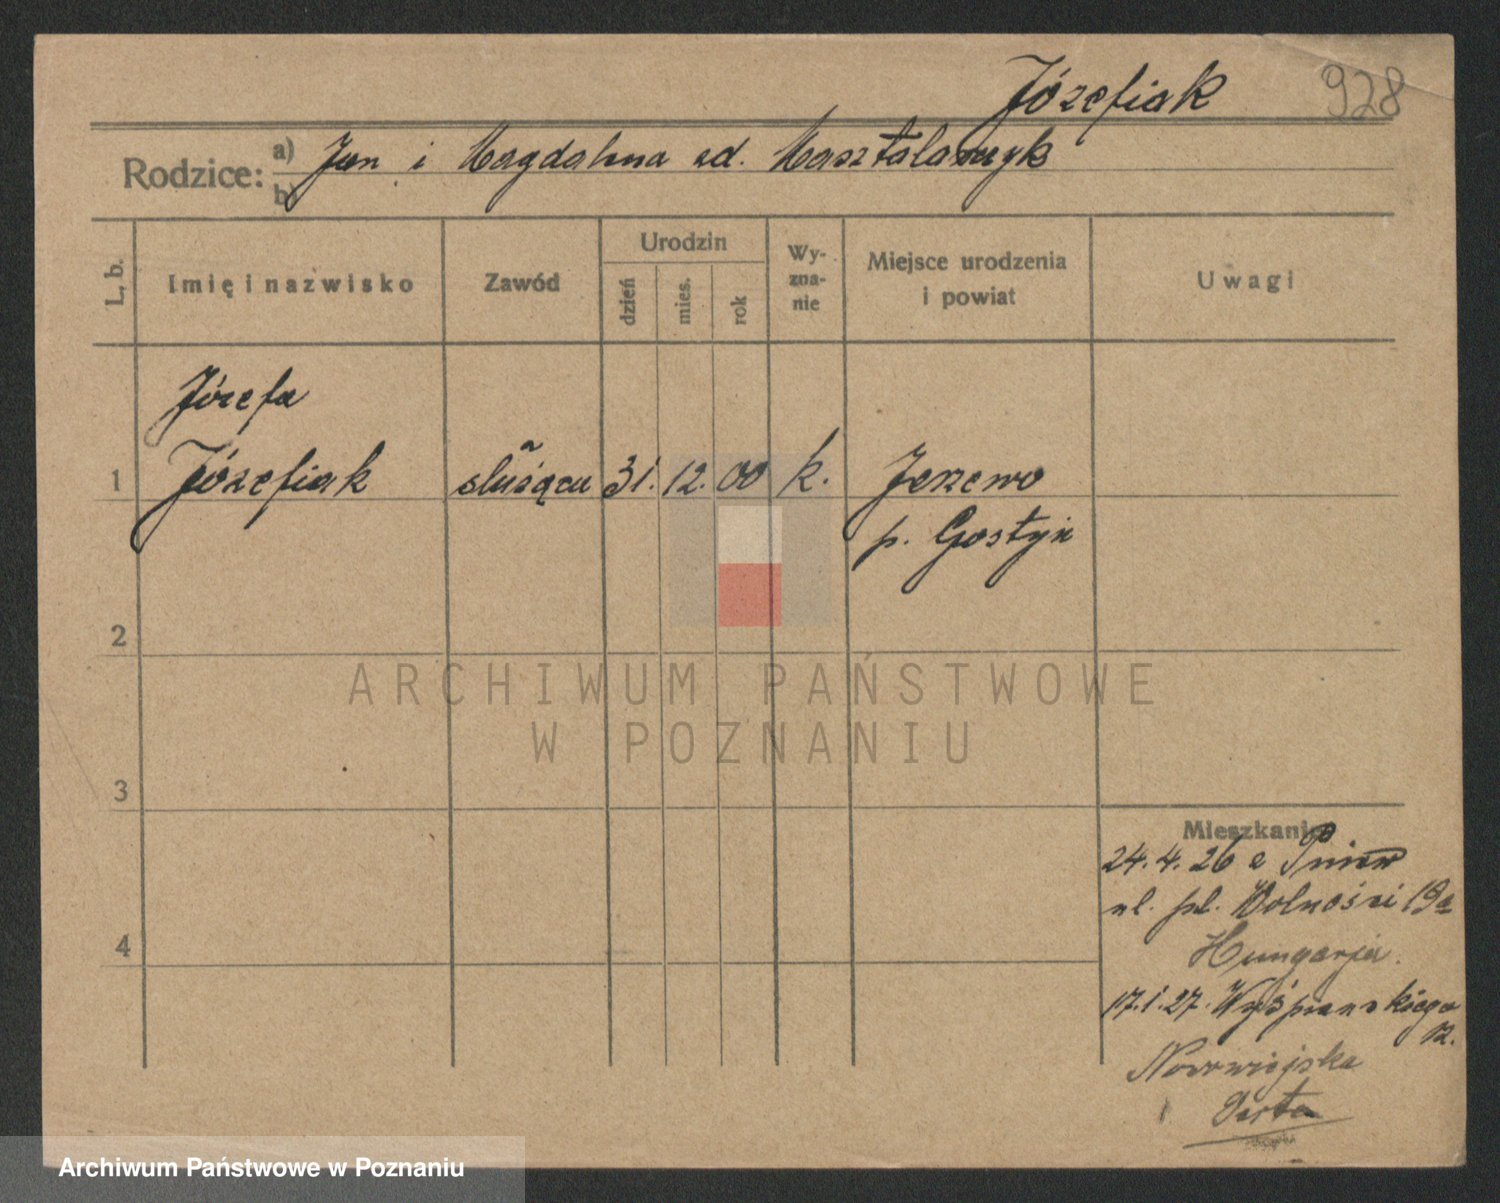 Józefiak 928
Rodzice: a) Jan i Magdalena
b)
L. b.
Imię i nazwisko
Zawód
Urodzin
dzień
mies.
rok
Wy-
zna-
nie
Miejsce urodzenia
i powiat
Uwagi
Józefa
1 Józefiak służąca 31. 12. 00 k. Jeżewo
p. Gostyń
2
3
4
Mieszkanie
24. 4. 26
ul. pl. Wolności 19a
Hungarja.
17.1.27. Wyśpiańskiego
12.
Nowowiejska
ARCHIWUM PAŃSTWOWE
W POZNANIU
Archiwum Państwowe w Poznaniu